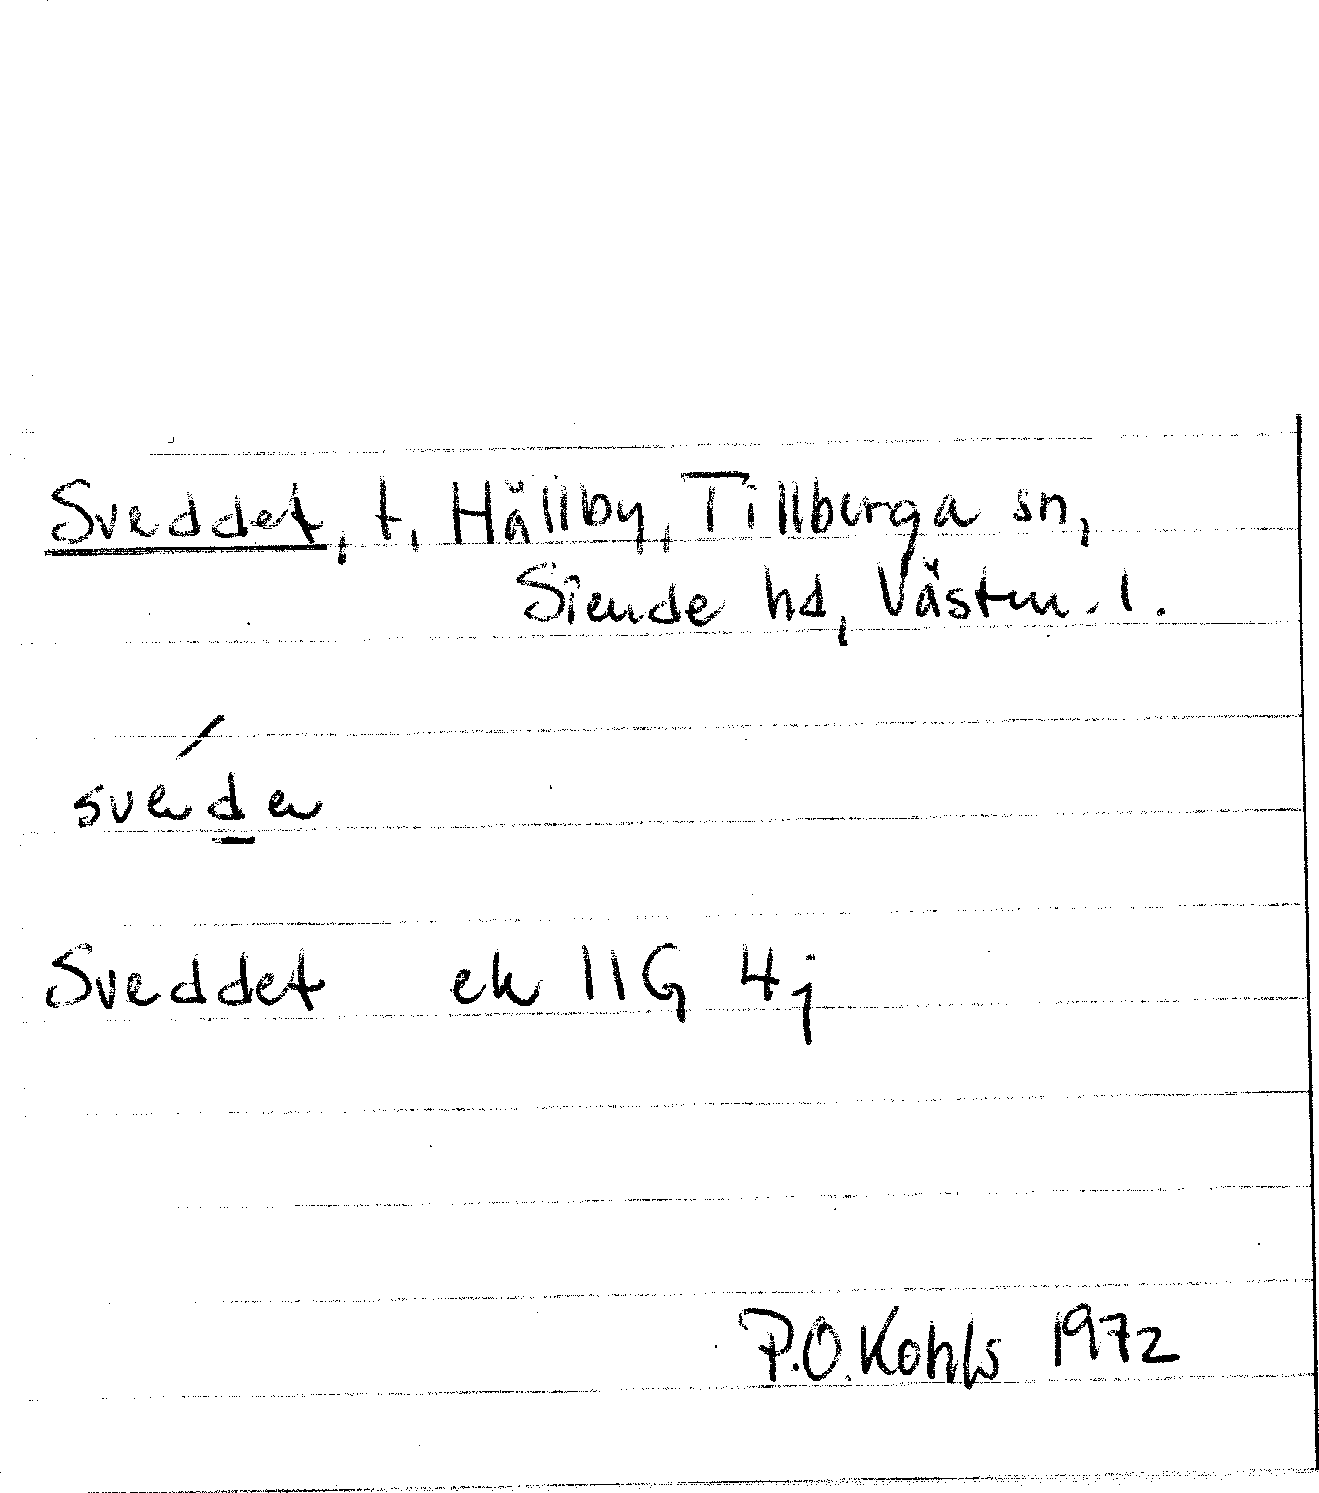 Sveddet, t. Hällby, Tillberga sn,
Siende hd, Västm. l.
svéde
Sveddet ek 11G 4j
P.O. Kohls 1972